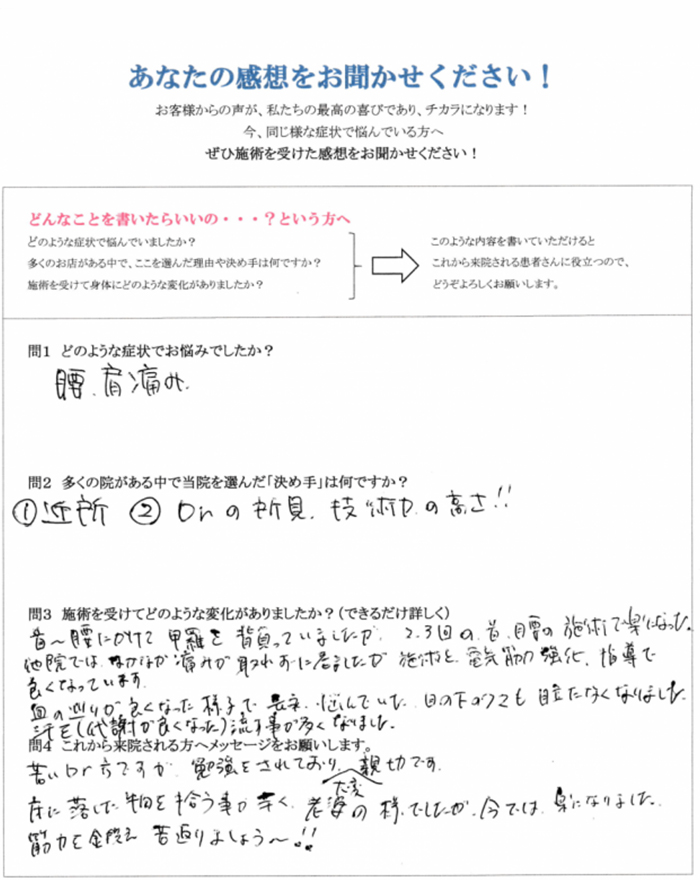 あなたの感想をお聞かせください！
お客様からの声が、私たちの最高の喜びであり、チカラになります！
今、同じ様な症状で悩んでいる方へ
ぜひ施術を受けた感想をお聞かせください！
どんなことを書いたらいいの・・・？という方へ
どのような症状で悩んでいましたか？
多くのお店がある中で、ここを選んだ理由や決め手は何ですか？
施術を受けて身体にどのような変化がありましたか？
このような内容を書いていただけると
これから来院される患者さんに役立つので、
どうぞよろしくお願いします。
問1 どのような症状でお悩みでしたか？
腰、肩痛み、
問2 多くの院がある中で当院を選んだ「決め手」は何ですか？
①近所 ② Drの所見、技術力の高さ!!
問3 施術を受けてどのような変化がありましたか？(できるだけ詳しく)
首〜腰にかけて甲羅を背負っていましたが、2、3回の、首、腰の施術で楽になった。
他院では、なかなか痛みが取れずに居ましたが施術と、電気筋力強化、指導で
良くなっています。
血の巡りが良くなった様子で長年、悩んでいた、目の下のクマも目立たなくなりました。
汗も(代謝が良くなった)流す事が多くなりました。
問4 これから来院される方へメッセージをお願いします。
若いDr方ですが、勉強をされており、親切です。
大変
床に落した物を拾う事が辛く、老婆の様でしたが、今では、楽になりました。
筋力を 若返りましょう〜!!